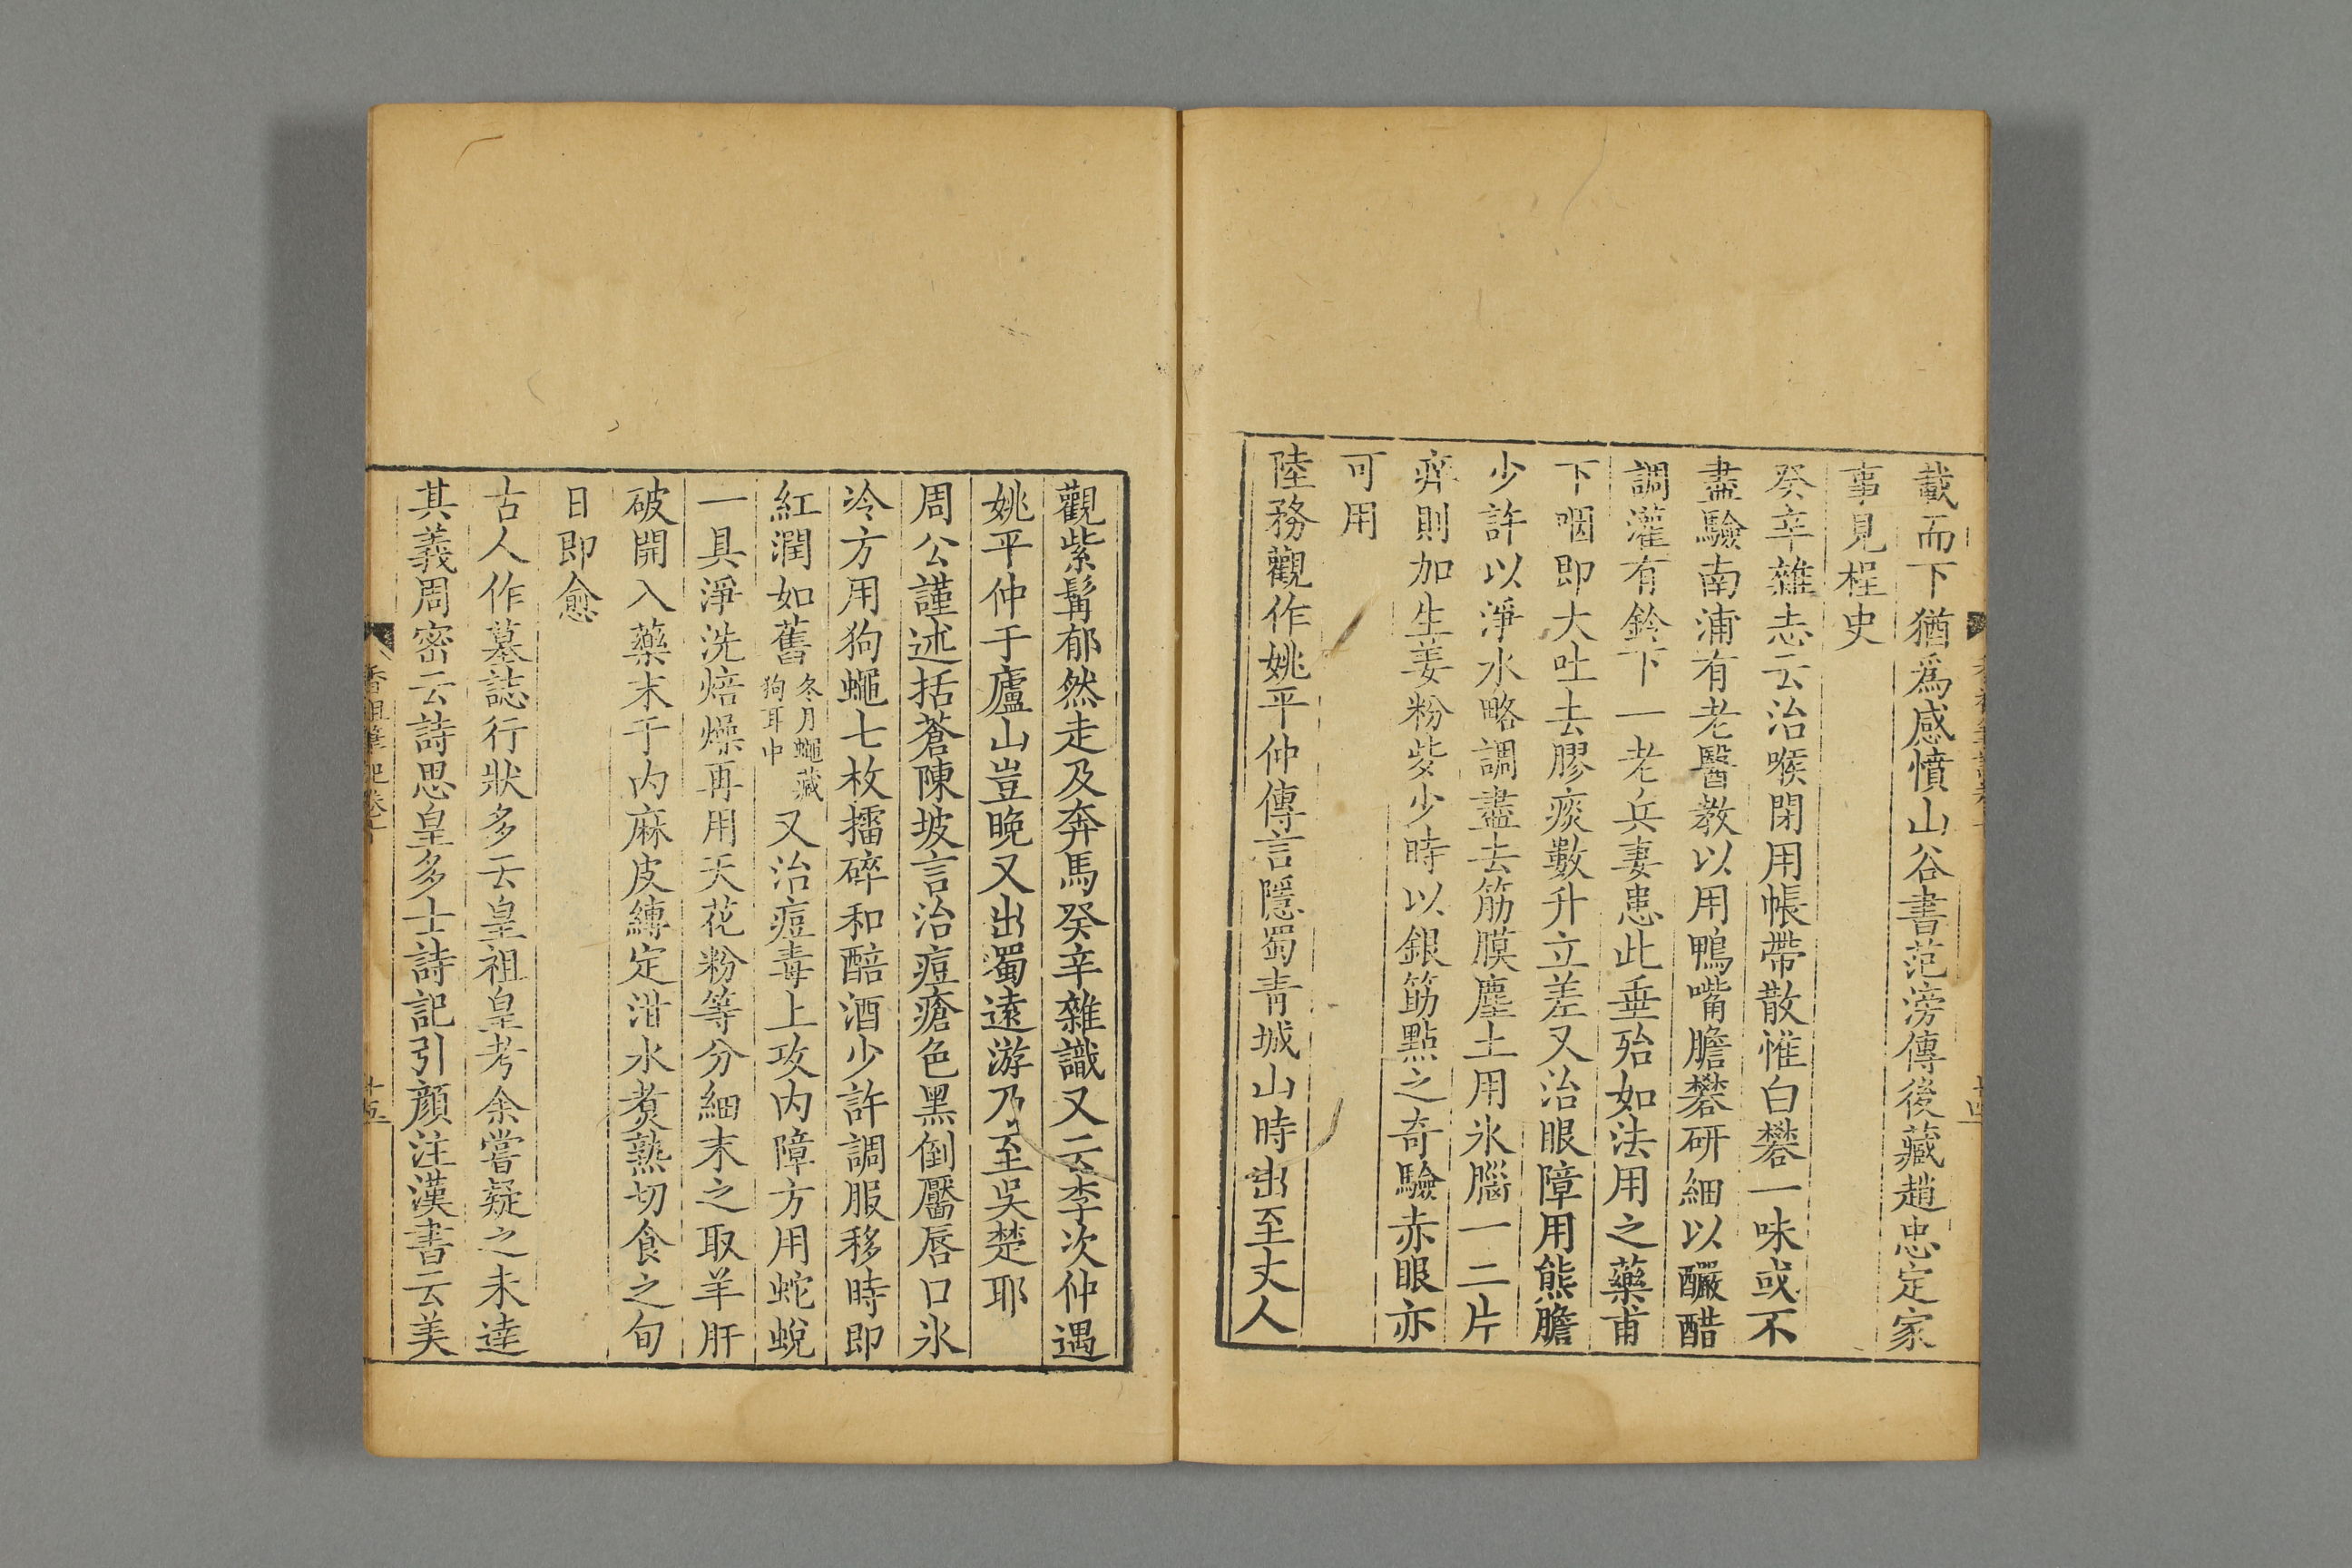 載而下猶爲感憤山谷書范滂傳後藏趙忠定家
事見桯史
癸辛雜志云治喉閉用帳帶散惟白礬一味或不
盡驗南浦有老醫教以用鴨嘴膽礬研細以釅醋
調灌有鈴下一老兵妻患此垂殆如法用之藥甫
下咽即大吐去膠痰數升立差又治眼障用熊膽
少許以淨水略調盡去筋膜塵土用氷腦一二片
痒則加生姜粉些少時以銀筯點之奇驗赤眼亦
可用
陸務觀作姚平仲傳言隱蜀青城山時出至丈人
觀紫髯郁然走及奔馬癸辛雜識又云李次仲遇
姚平仲于廬山豈晚又出蜀遠游乃至吳楚耶
周公謹述括蒼陳坡言治痘瘡色黑倒靨唇口氷
冷方用狗蠅七枚擂碎和醅酒少許調服移時即
紅潤如舊冬月蠅藏狗耳中又治痘毒上攻内障方用蛇蛻
一具淨洗焙燥再用天花粉等分細末之取羊肝
破開入藥末于内麻皮縛定泔水煑熟切食之旬
日即愈
古人作墓誌行狀多云皇祖皇考余嘗疑之未達
其義周密云詩思皇多士詩記引顏注漢書云美
香祖筆記卷十
十五